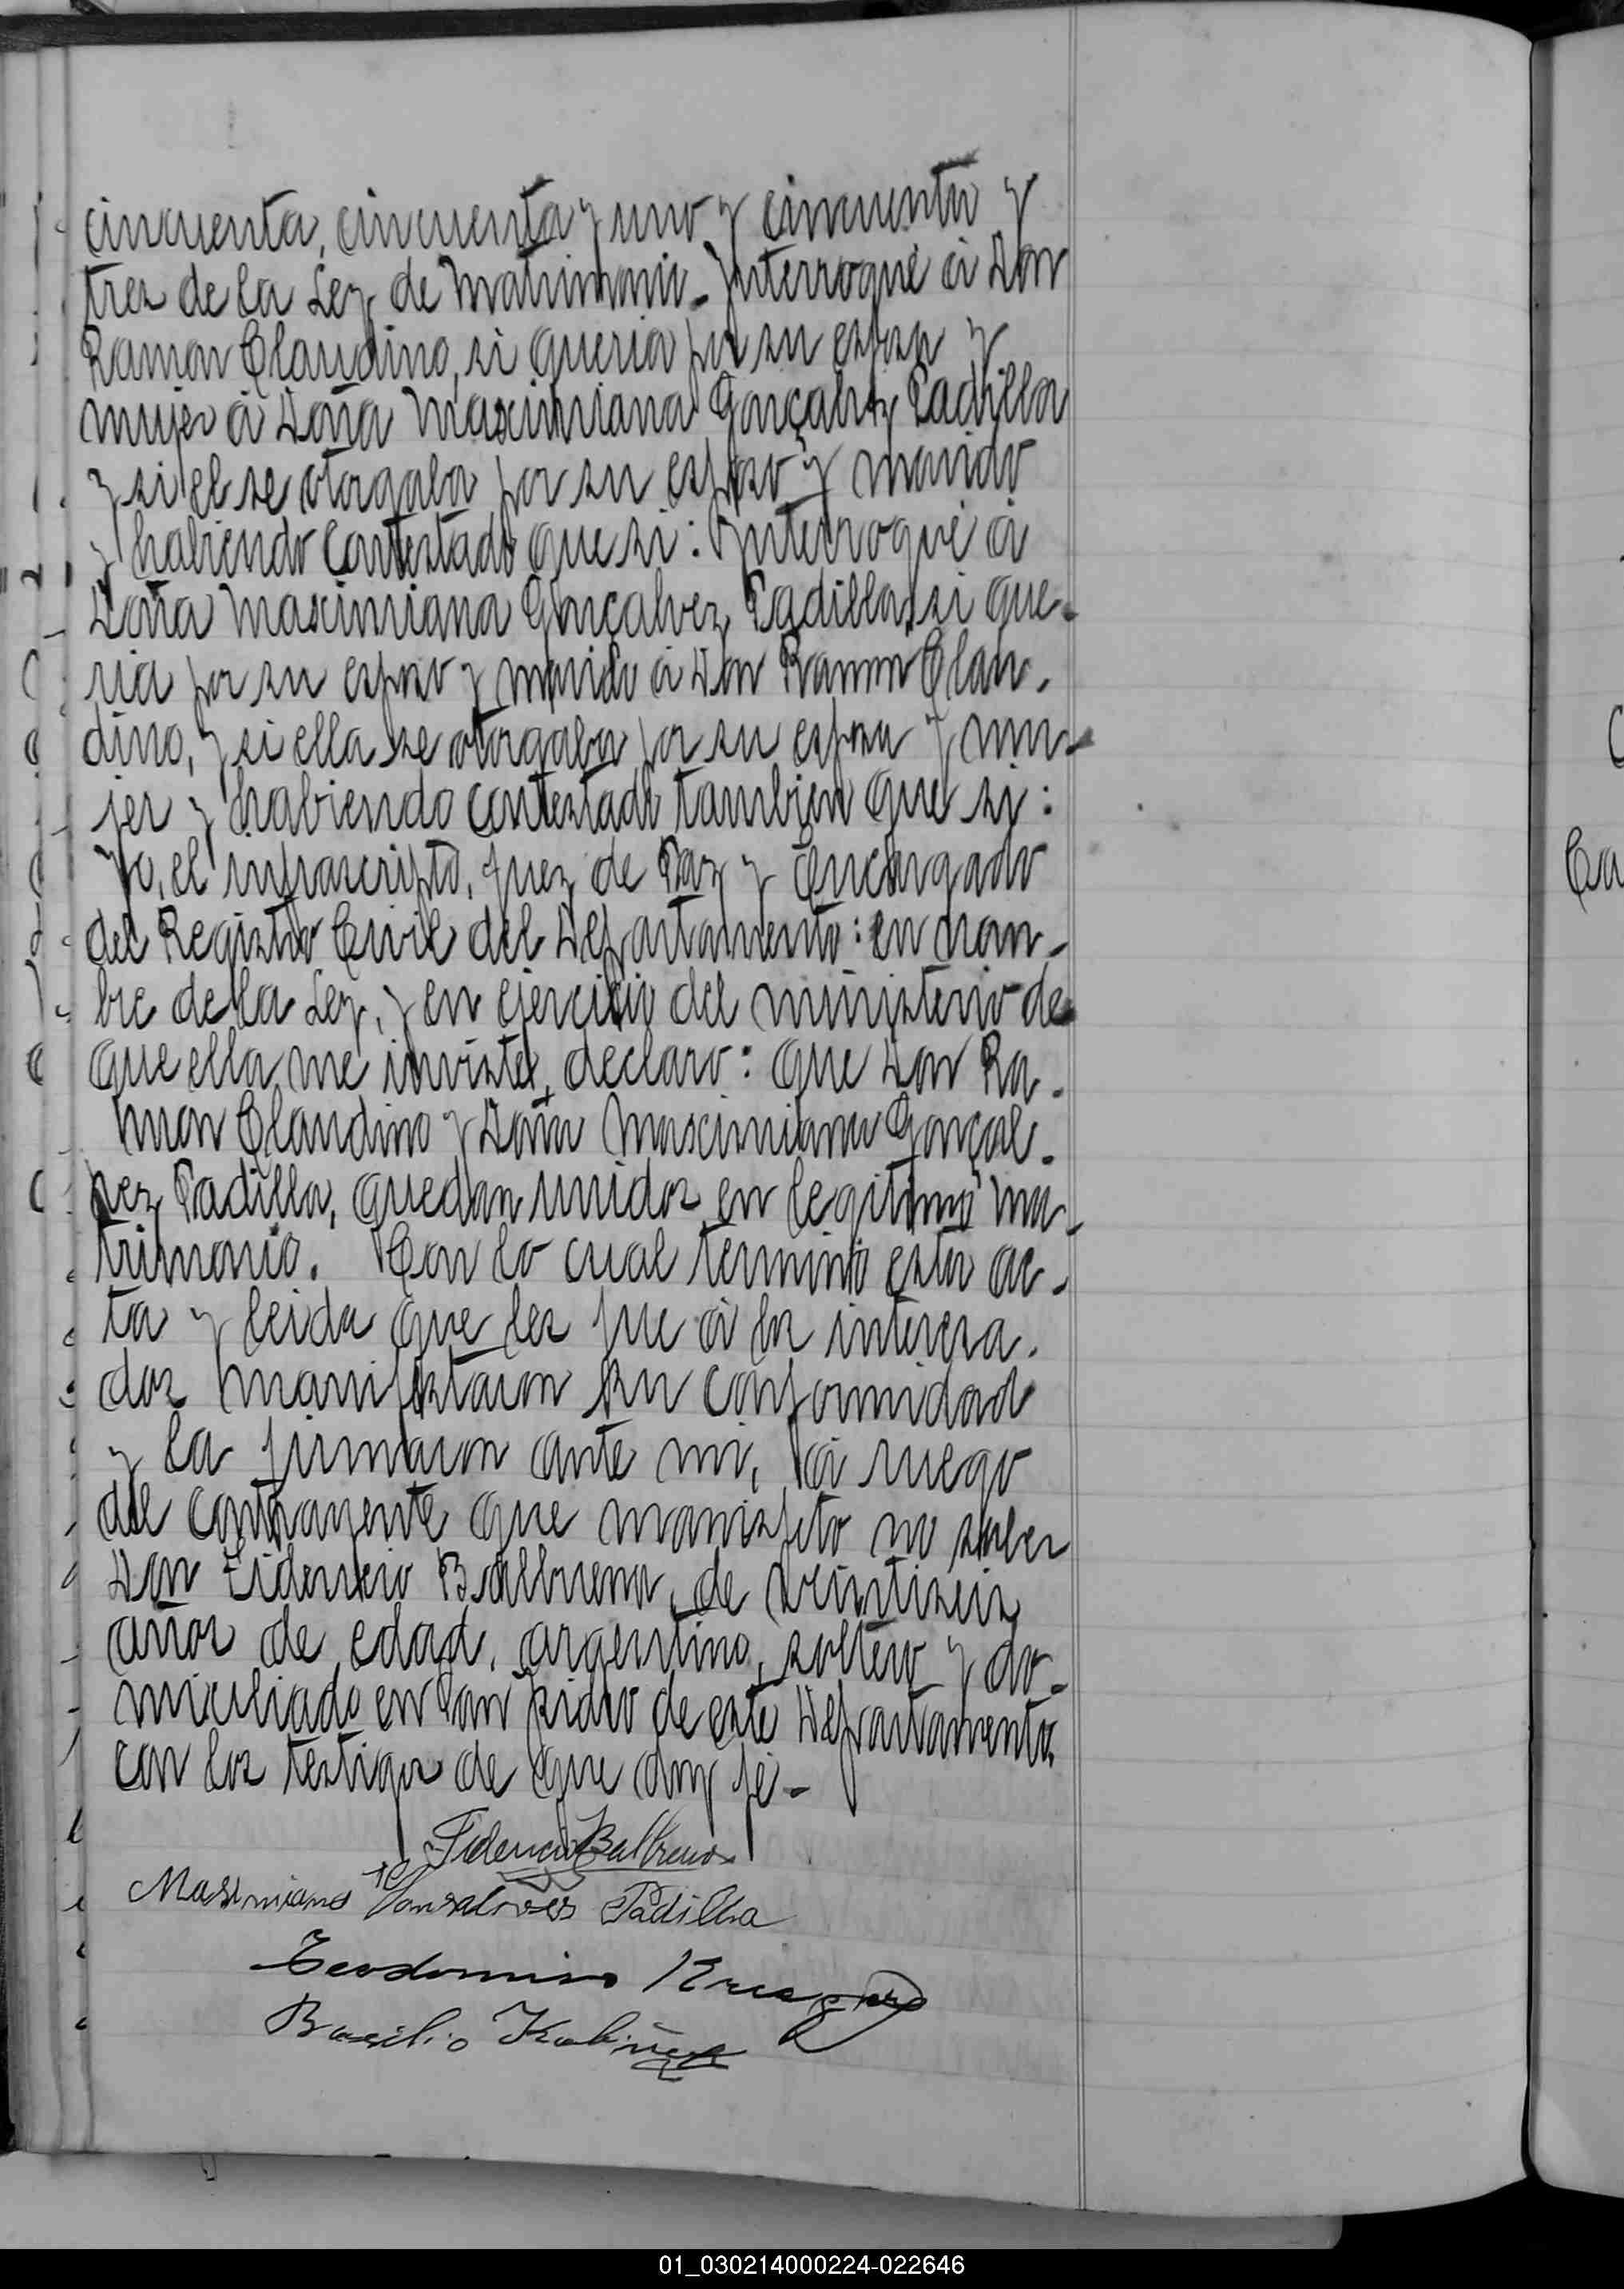 cincuenta, cincuenta y uno y cincuenta y
tres de la Ley de Matrimonio. Interrogué á Don
Ramon Claudino, si queria por su esposa y
mujer á Doña Maximiana Gonçalvez Padilla
y si el se otorgaba por su esposo y marido
y habiendo contestado que si: Interrogué á
Doña Maximiana Gonçalvez Padilla, si que-
ria por su esposo y marido á Don Ramon Clau-
dino, y si ella se otorgaba por su esposa y mu-
jer y habiendo contestado tambien que si:
Yo, el infrascripto, Juez de Paz y Encargado
del Registro Civil del Departamento: en nom-
bre de la Ley, y en ejercicio del ministerio de
que ella me inviste, declaro: que Don Ra-
mon Claudino y Doña Maximiana Gonçal-
vez Padilla, quedan unidos en legitimo ma-
trimonio. Con lo cual terminó esta ac-
ta y leida que les fue á los interesa-
dos manifestaron su conformidad
y la firmaron ante mi, á ruego
del contrayente que manifestó no saber
Don Fidencio Balbuena, de veintiseis
años de edad, argentino, soltero y do-
miciliado en San Isidro de este Departamento
con los testigos de que doy fé-
Fidencio Balbuena
Maximiana Gonsalvez Padilla
Teodomiro
Basilio
C
Ca
01_030214000224-022646